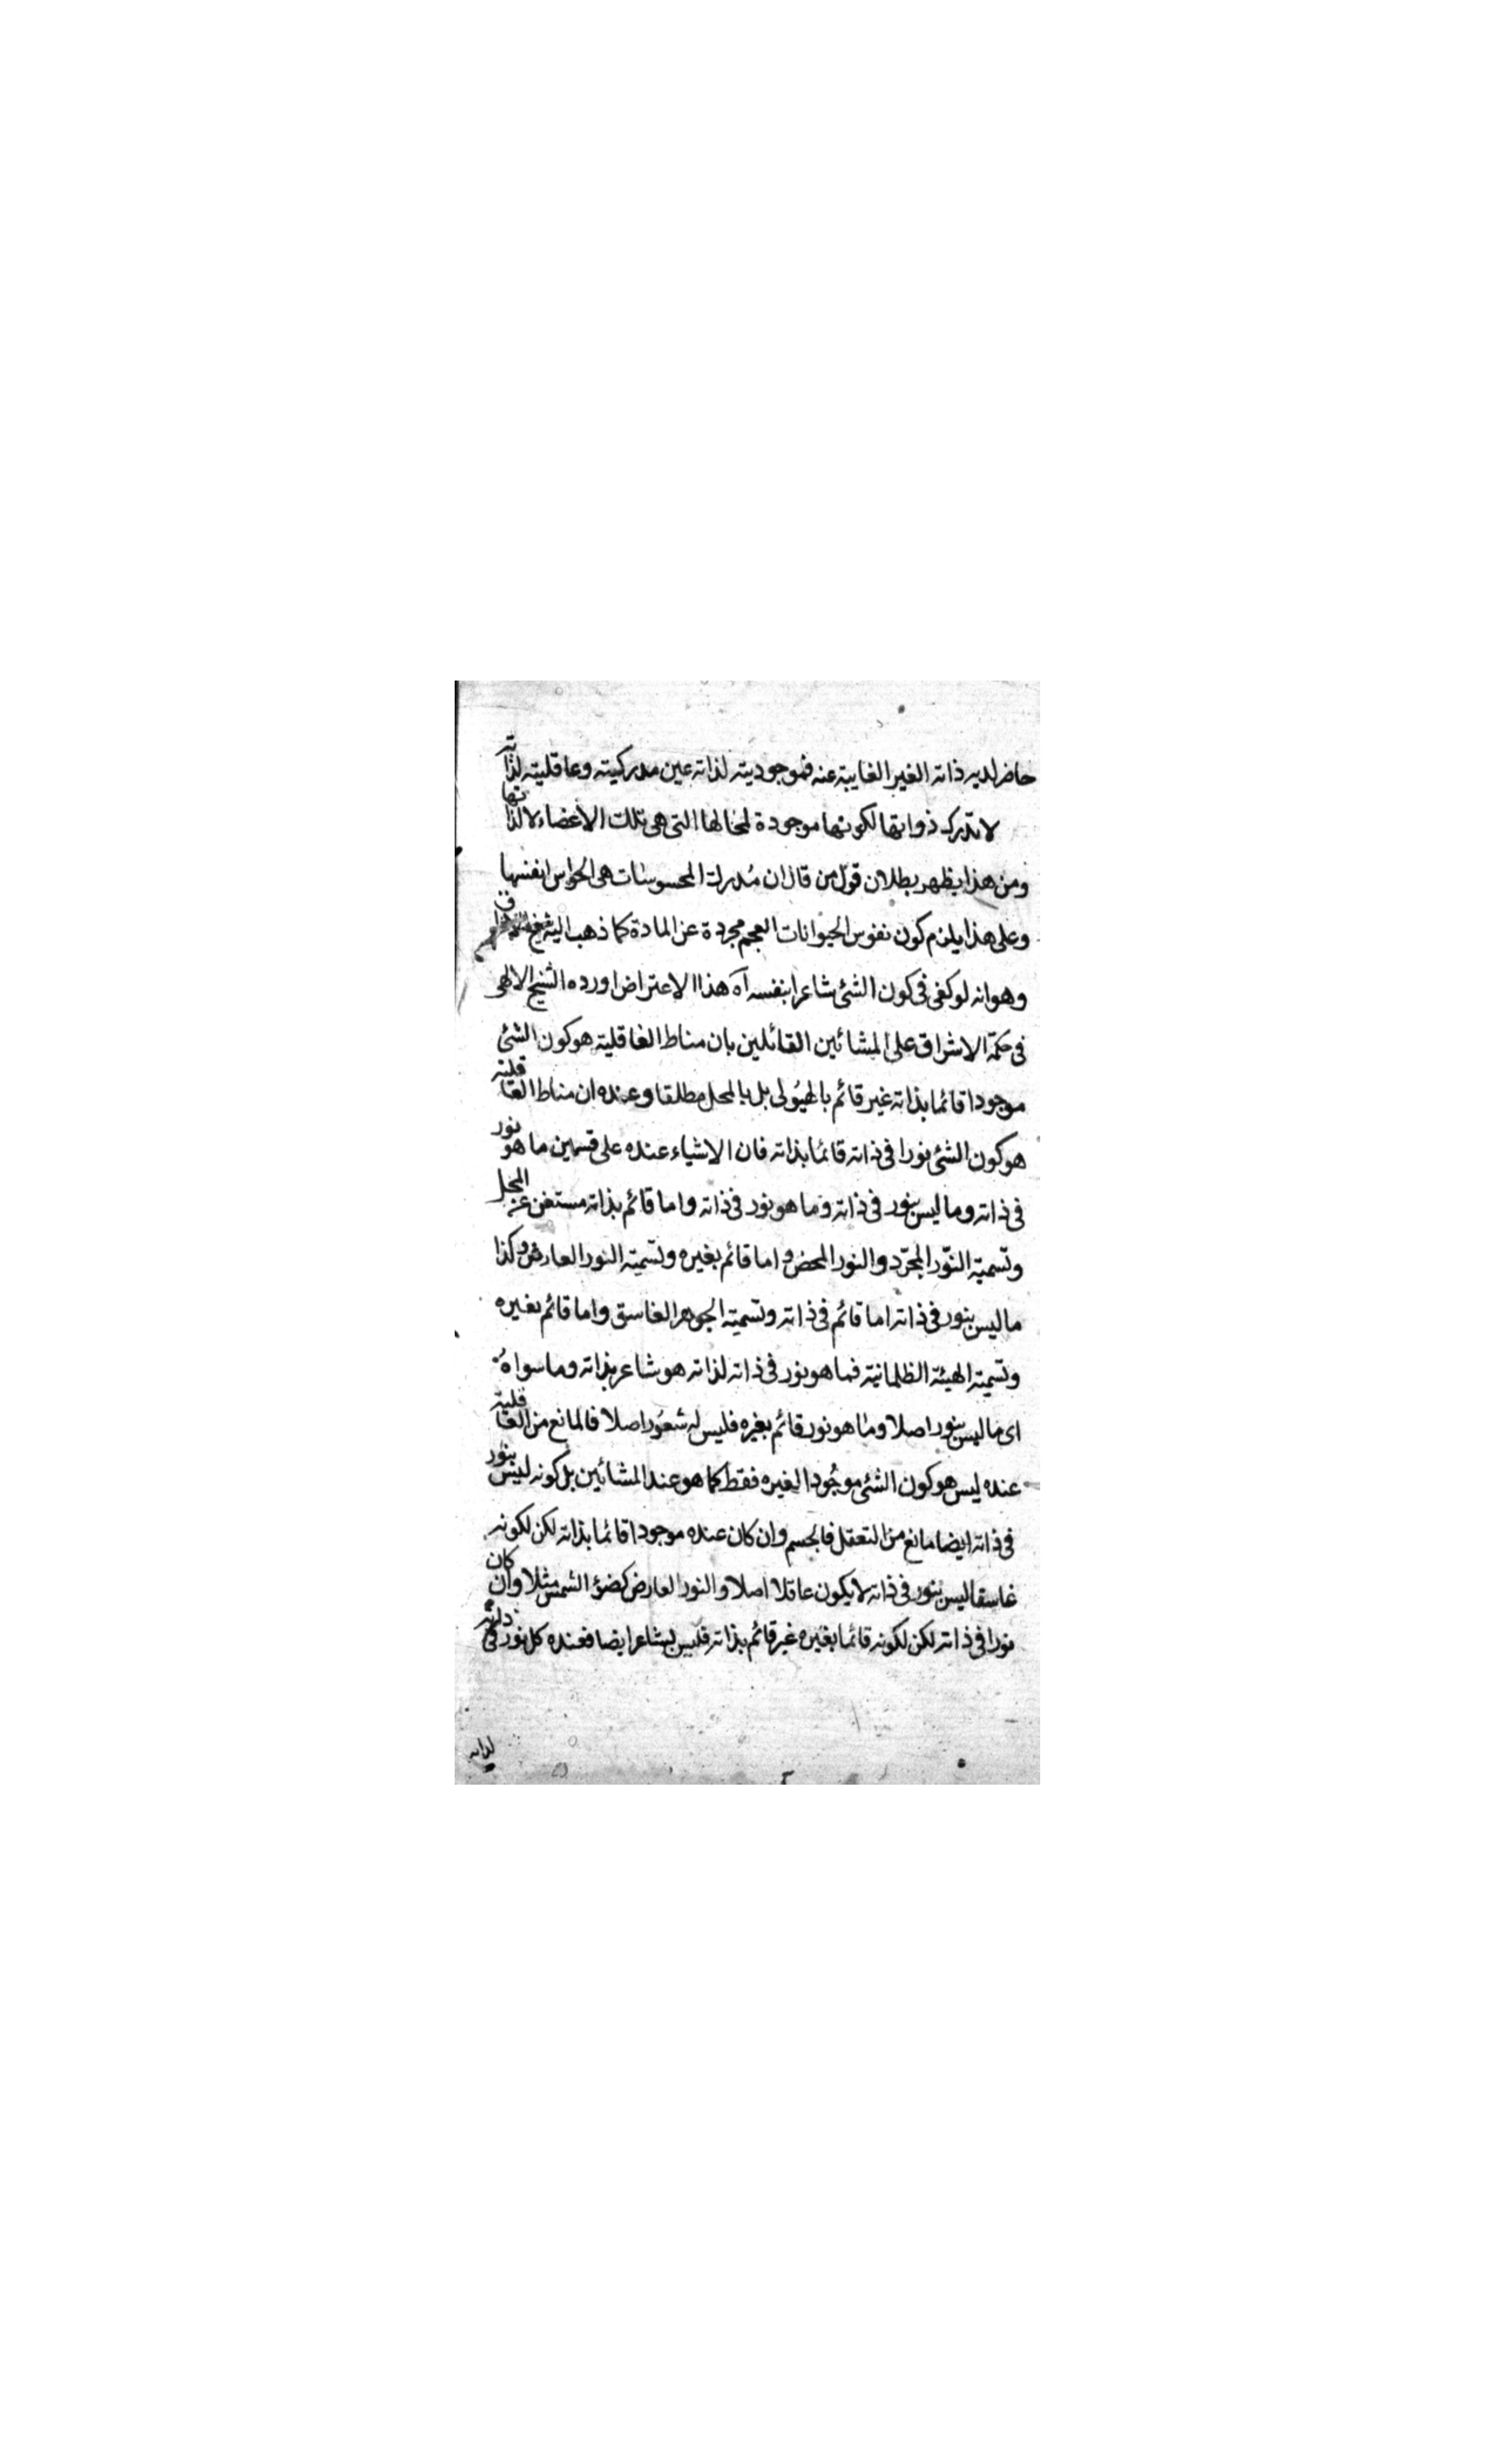 حاضر لديه ذاته الغير الغايبة عنه فموجوديته لذاته عين مدركيته وعاقليته لذاته
لا تدرك ذواتها لكونها موجودة لمحالها التى هى تلك الاعضاء لا لذاتها
ومن هذا يظهر بطلان قول من قال ان مُدرك المحسوسات هى الحواس انفسها
وعلى هذا يلزم كون نفوس الحيوانات العجم مجردة عن المادة كما ذهب اليه
وهو انه لو كفى فى كون الشئ شاعرا بنفسه آه هذا الاعتراض اورده الشيخ الالهى
فى حكمة الاشراق على المشائين القائلين بان مناط العاقلية هو كون الشئ
موجودا قائما بذاته غير قائم بالهيُولى بل بالمحل مطلقا وعنده ان مناط العاقلية
هو كون الشئ نورا فى ذاته قائما بذاته فان الاشياء عنده على قسمين ما هو نور
فى ذاته وما ليس بنور فى ذاته وما هو نور فى ذاته واما قائم بذاته مستغن عن المحل
وتسميته النّور المجرّد والنور المحض واما قائم بغيره وتسميته النور العارض وكذا
ما ليس بنور فى ذاته اما قائم فى ذاته وتسميته الجوهر الغاسق واما قائم بغيره
وتسميته الهيئة الظلمانية فما هو نور فى ذاته لذاته هو شاعر بذاته وما سواهُ
اى ما ليس بنور اصلا وما هو نور قائم بغيره فليس له شعُور اصلا فالمانع من العاقلية
عنده ليس هو كون الشئ موجُودا لغيره فقط كما هو عند المشائين بل كونه ليس بنور
فى ذاته ايضا مانع من التعقل فالجسم وان كان عنده موجودا قائما بذاته لكن لكونه
غاسقا ليس بنور فى ذاته لا يكون عاقلا اصلا والنور العارض كضؤ الشمس مثلا وان كان
نورا فى ذاته لكن لكونه قائما بغيره غير قائم بذاته فليس بشاعر ايضا فعنده كل نور فى ذاته
لذاته